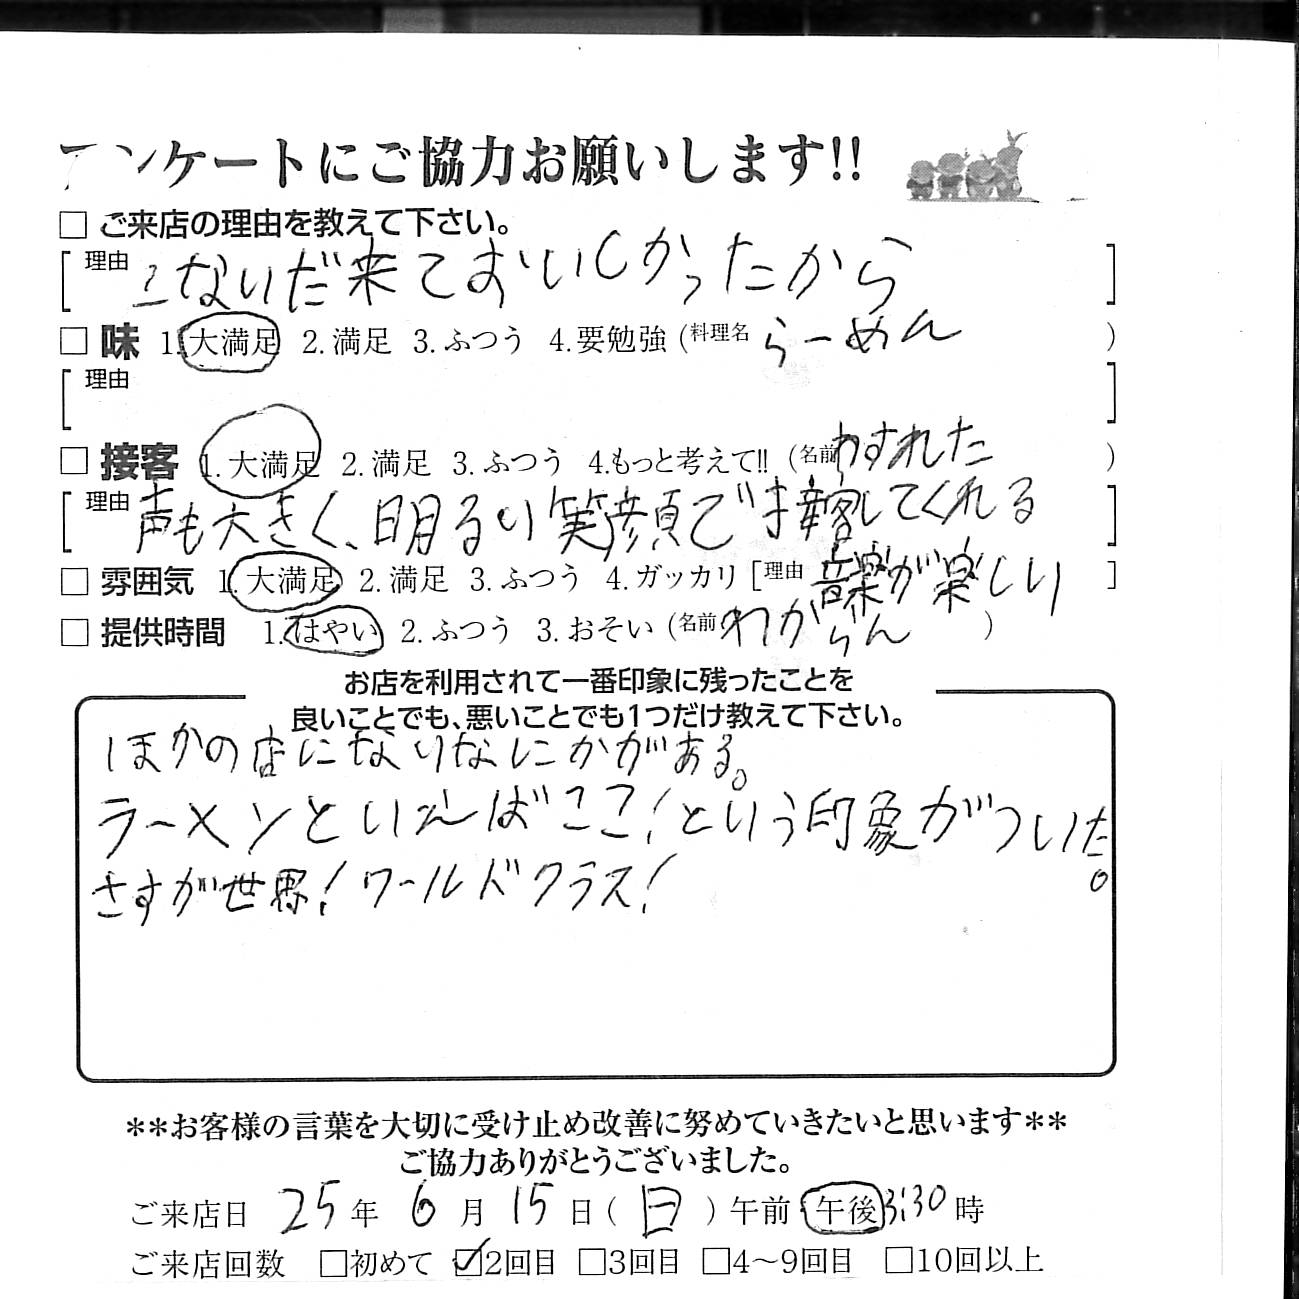 アンケートにご協力お願いします!!
□ ご来店の理由を教えて下さい。
[理由 こないだ来ておいしかったから]
□ 味 1.大満足 2.満足 3.ふつう 4.要勉強 (料理名 らーめん)
[理由 ]
□ 接客 1.大満足 2.満足 3.ふつう 4.もっと考えて!! (名前 わすれた)
[理由 声も大きく、明るい笑顔で接客してくれる]
□ 雰囲気 1.大満足 2.満足 3.ふつう 4.ガッカリ [理由 音楽が楽しい]
□ 提供時間 1.はやい 2.ふつう 3.おそい (名前 わからん)
お店を利用されて一番印象に残ったことを
良いことでも、悪いことでも1つだけ教えて下さい。
ほかの店にないなにかがある。
ラーメンといえばここ!という印象がついた。
さすが世界!ワールドクラス!
**お客様の言葉を大切に受け止め改善に努めていきたいと思います**
ご協力ありがとうございました。
ご来店日 25年 6月 15日(日)午前 午後3:30時
ご来店回数 □初めて ☑2回目 □3回目 □4〜9回目 □10回以上